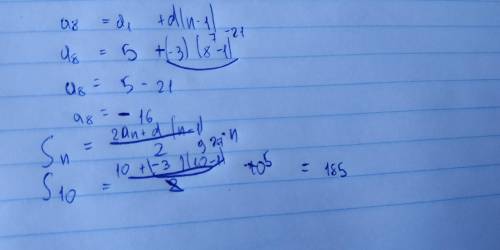 a₈ = a₁ + d(n-1)
a₈ = 5 + (-3) (8-1) 7 -21
a₈ = 5 - 21
a₈ = - 16
Sn = 2an + d (n-1) / 2 · n
S10 = 10 + (-3) (10-1) / 2 · 10 5 = 185